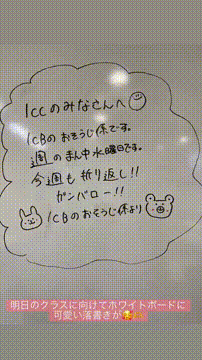 1ccのみなさんへ
1CBのおそうじ係です。
週のまん中水曜日です。
今週も折り返し!!
ガンバロー!!
1CBのおそうじ係より
明日のクラスに向けてホワイトボードに
可愛い落書きが